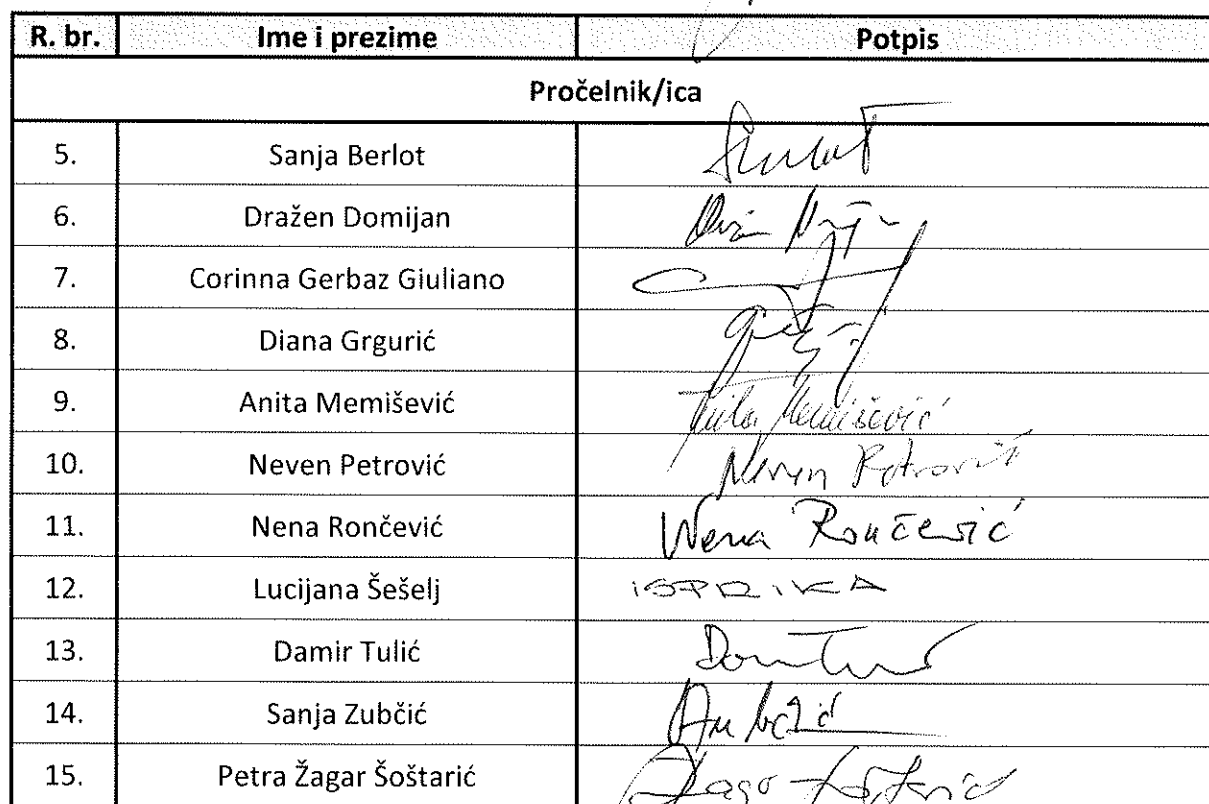 R. br. Ime i prezime Potpis
Pročelnik/ica
5. Sanja Berlot
6. Dražen Domijan
7. Corinna Gerbaz Giuliano
8. Diana Grgurić
9. Anita Memišević Anita Memišević
10. Neven Petrović Neven Petrović
11. Nena Rončević Nena Rončević
12. Lucijana Šešelj ISPRIKA
13. Damir Tulić
14. Sanja Zubčić
15. Petra Žagar Šoštarić